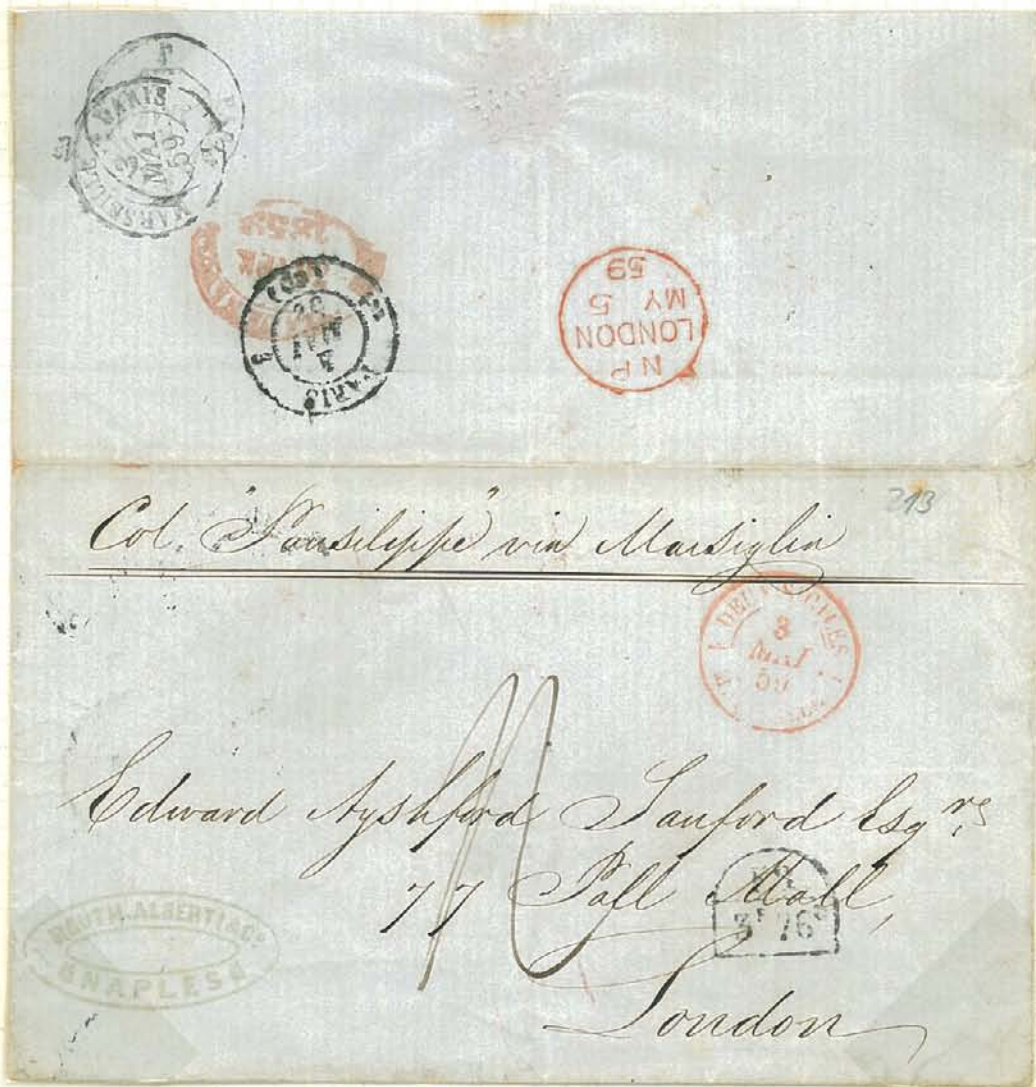 MARSEILLE A PARIS
3
MAI
59
PARIS
MAI
LONDON
N P
MY 5
59
213
Col. "Pausilippe" via Marsiglia
DEUX SICILES
3
MAI
59
Edward Ayshford Sanford Esqre,
77 Pall Mall,
London
3F 76c
ROUTH. ALBERTI & Co
NAPLES